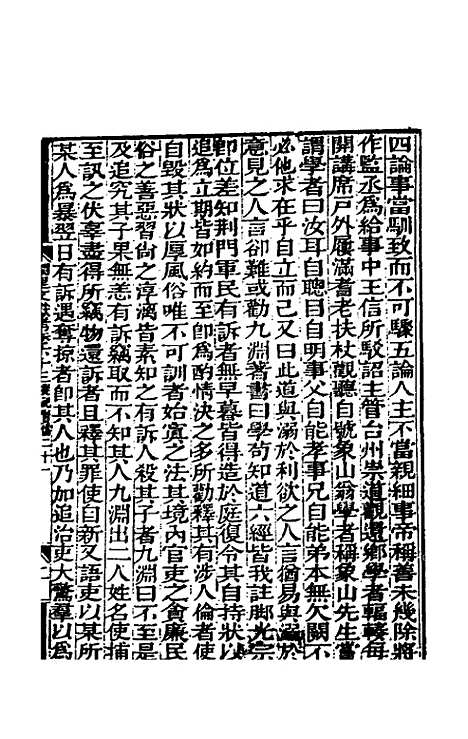 四論事當馴致而不可驟五論人主不當親細事帝稱善未幾除將
作監丞為給事中王信所駮詔主管台州崇道觀還鄉學者輻輳每
開講席戶外屨滿耆老扶杖觀聽自號象山翁學者稱象山先生嘗
謂學者曰汝耳自聰目自明事父自能孝事兄自能弟本無欠闕不
必他求在乎自立而己又曰此道與溺於利欲之人言猶易與溺於
意見之人言卻難或勸九淵著書曰學苟知道六經皆我註脚光宗
卽位差知荆門軍民有訴者無早暮皆得造於庭復令其自持狀以
追為立期皆如約而至即為酌情決之多所勸釋其有涉人倫者使
自毀其狀以厚風俗唯不可訓者始寘之法其境內官吏之貪廉民
俗之善惡習尚之淳漓皆素知之有訴人殺其子者九淵曰不至是
及追究其子果無恙有訴竊取而不知其人九淵出二人姓名使捕
至訊之伏辜盡得所竊物還訴者且釋其罪使自新又語吏以某所
某人為暴翌日有訴遇奪掠者即其人也乃加追治吏大驚羣以為